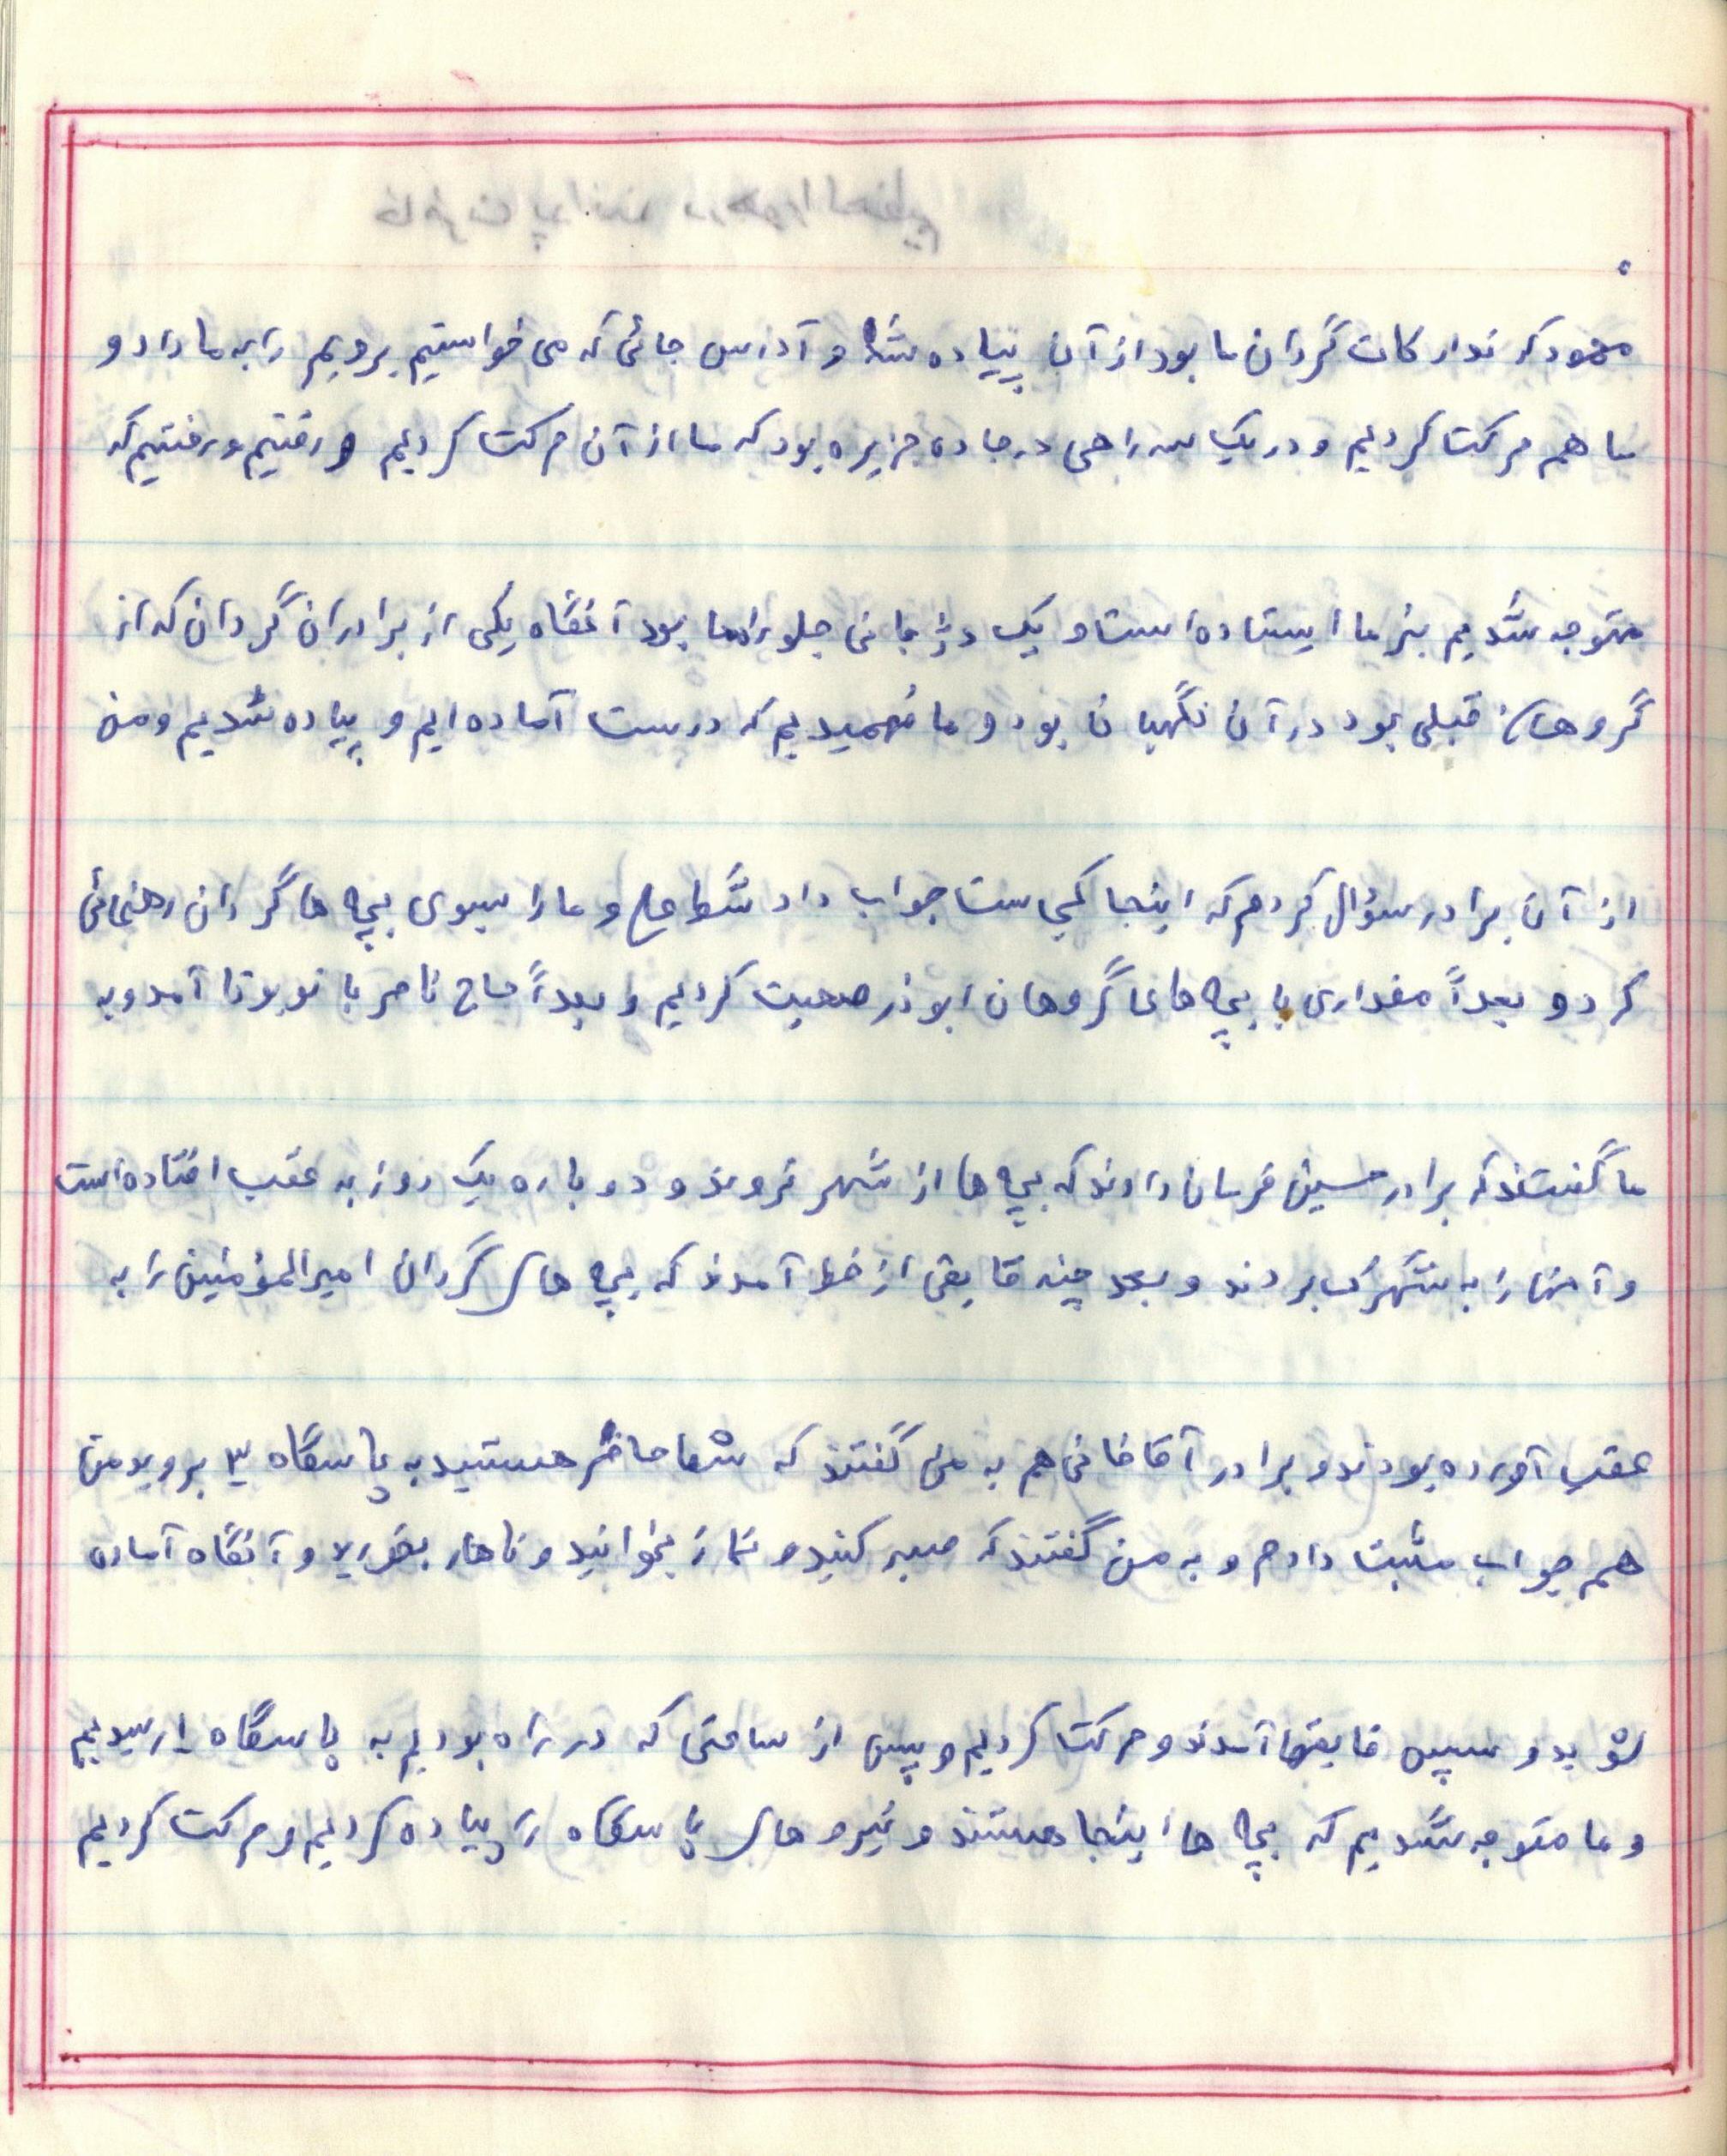 محمود که تدارکات گردان ما بود از آن پیاده شد و آدرس جائی که می خواستیم برویم را به ما داد و
ما هم حرکت کردیم و در یک سه راهی در جاده جزیره بود که ما از آن حرکت کردیم و رفتیم و رفتیم که
متوجه شدیم بنز ما ایستاده است و یک دژبانی جلو راه ما بود آنگاه یکی از برادران گردان که از
گروهان قبلی بود در آن نگهبان بود و ما فهمیدیم که درست آمده ایم و پیاده شدیم و من
از آن برادر سؤال کردم که اینجا کجاست جواب داد شط علی و ما را بسوی بچه ها گردان رهنمائی
کرد و بعداً مقداری با بچه های گروهان ابوذر صحبت کردیم و بعداً حاج ناصر با تویوتا آمد و به
ما گفتند که برادر حسین فرمان دادند که بچه ها از شهر نروند و دوباره یک روز به عقب افتاده است
و آنها را به شهرک بردند و بعد چند قایقی از خط آمدند که بچه های گردان امیرالمؤمنین را به
عقب آورده بودند و برادر آقاخانی هم به من گفتند که شما حاضر هستید به پاسگاه ۳ بروید من
هم جواب مثبت دادم و به من گفتند که صبر کنید و نماز بخوانید و ناهار بخورید و آنگاه آماده
شوید و سپس قایقها آمدند و حرکت کردیم و پس از ساعتی که در راه بودیم به پاسگاه ۱ رسیدیم
و ما متوجه شدیم که بچه ها اینجا هستند و نیروهای پاسگاه را پیاده کردیم و حرکت کردیم